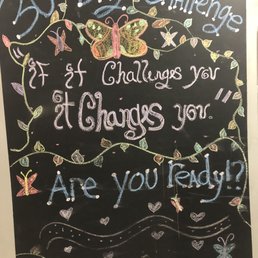 30 Day Challenge
"If it Challenges you
it Changes you"
Are you ready!?